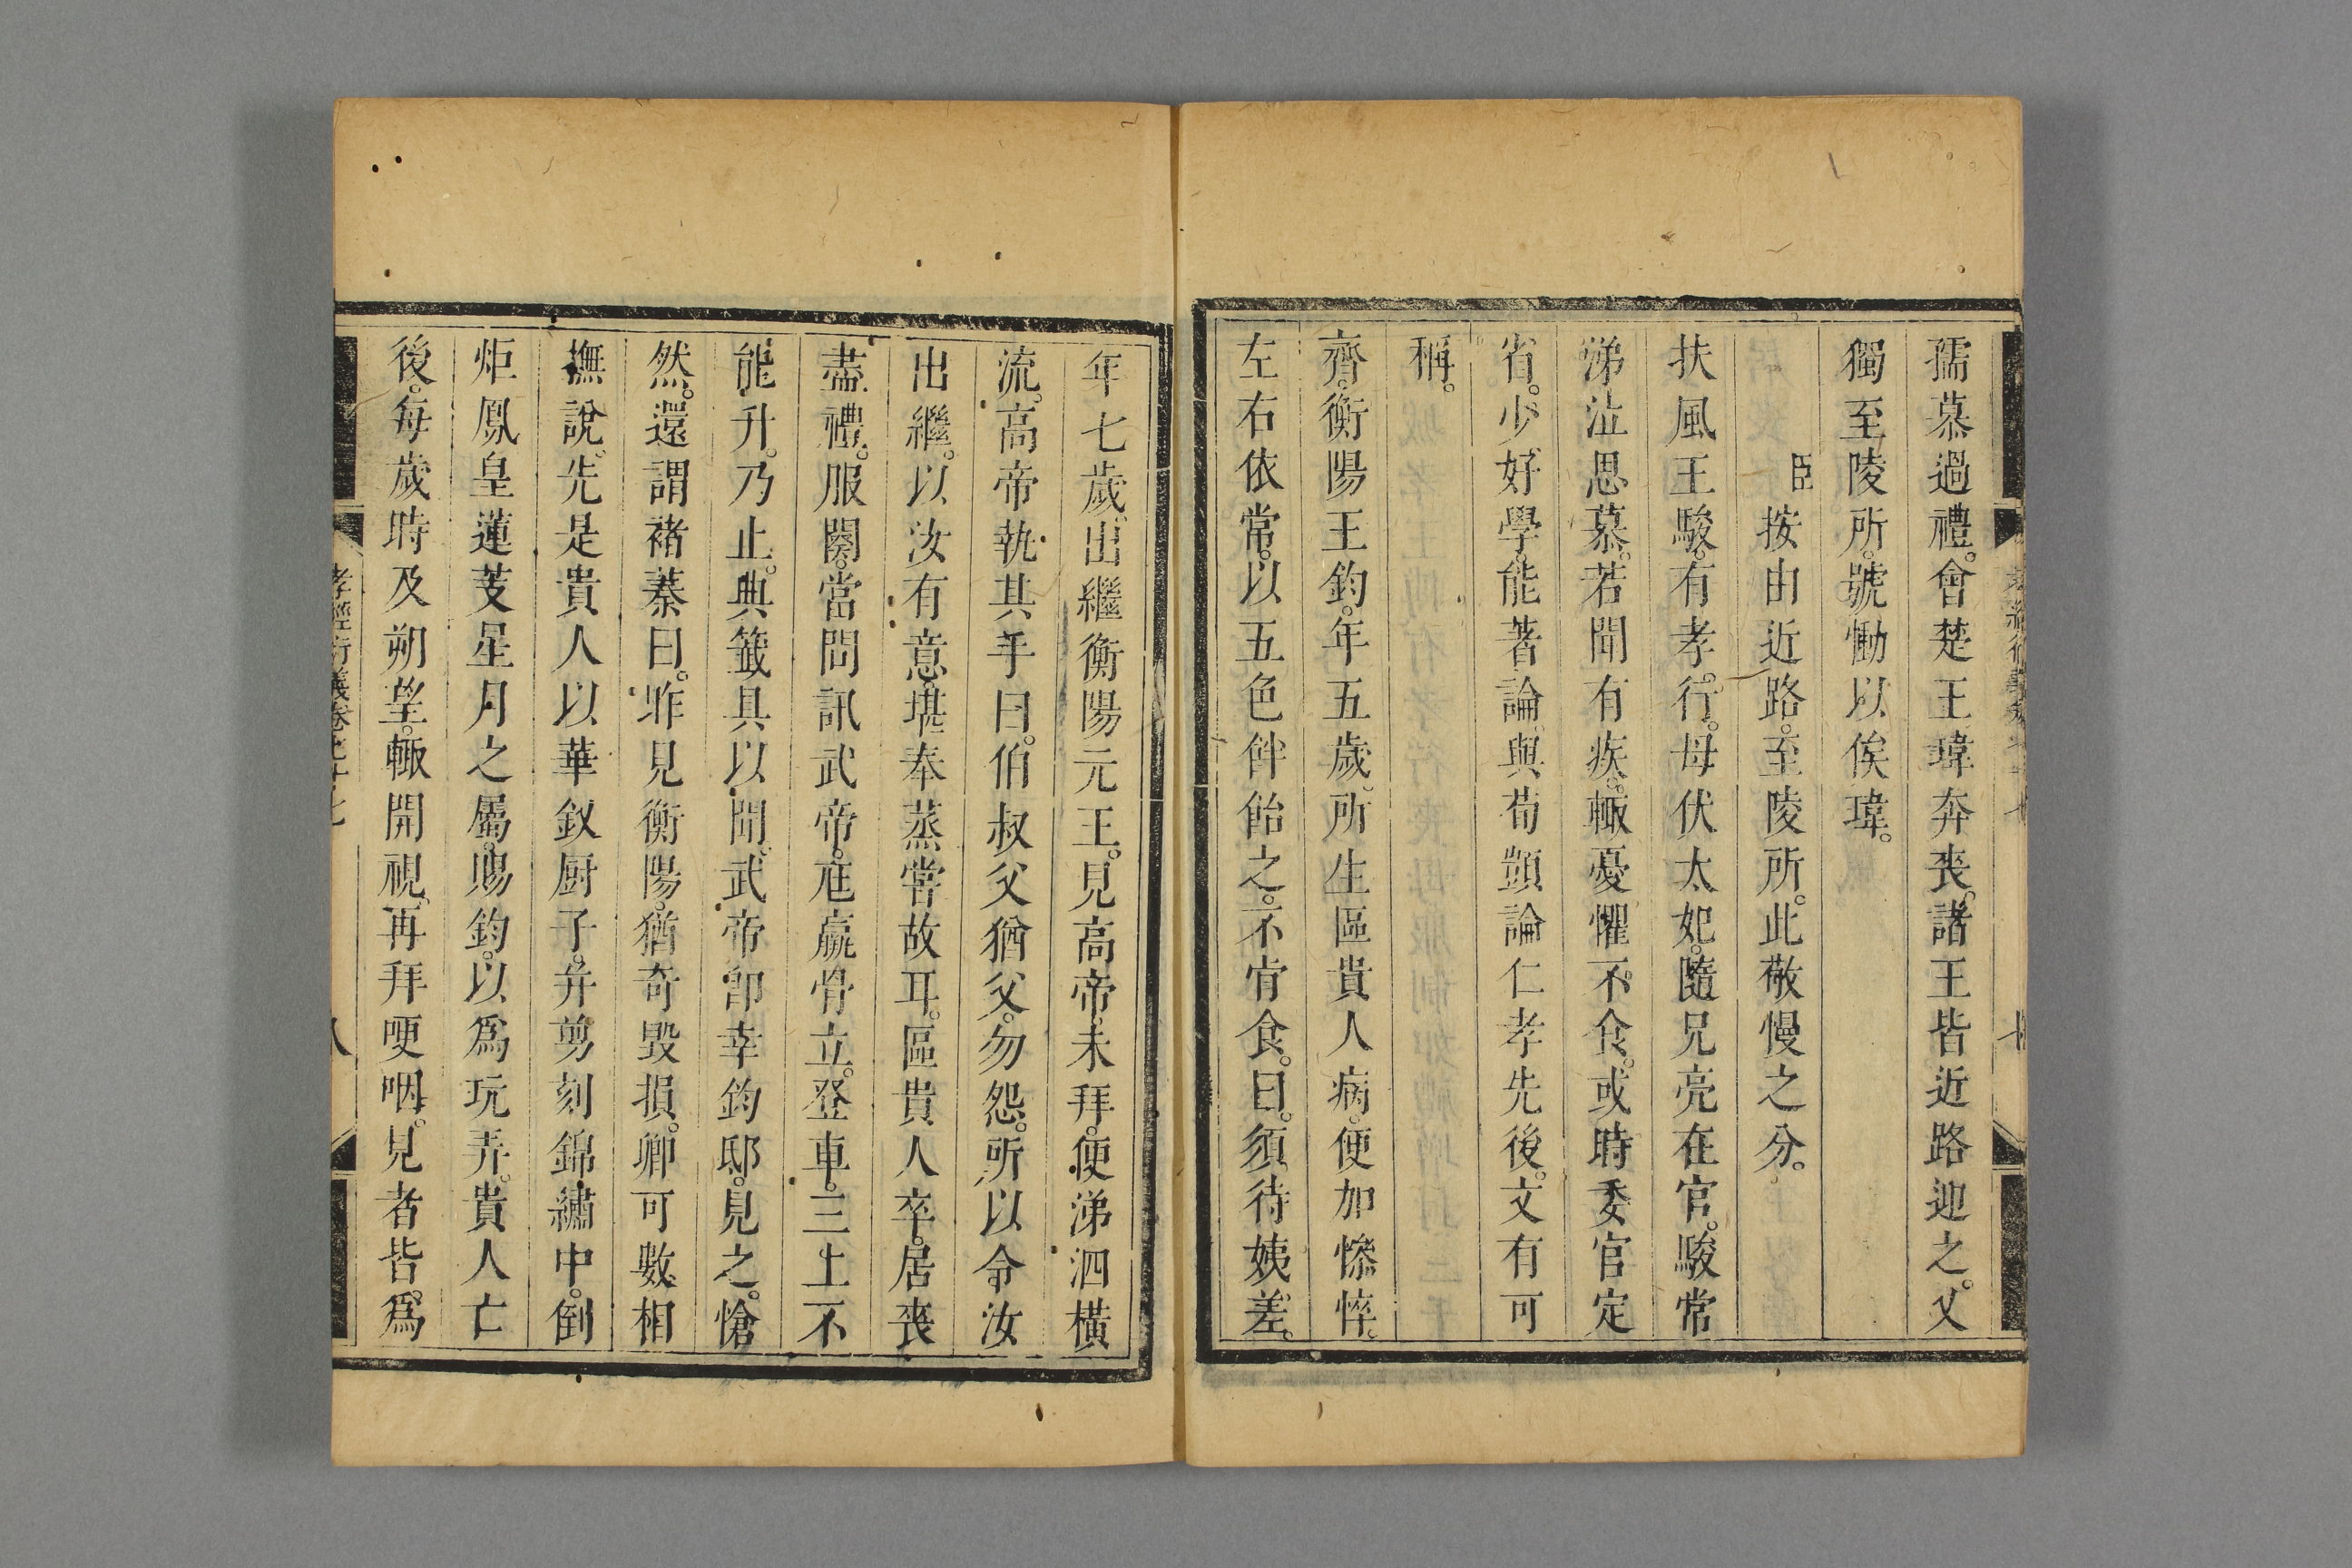 孺慕過禮。會楚王瑋奔喪。諸王皆近路迎之。乂
獨至陵所。號慟以俟瑋。
臣按由近路。至陵所。此敬慢之分。
扶風王駿。有孝行。母伏太妃。隨兄亮在官。駿常
涕泣思慕。若聞有疾。輒憂懼不食。或時委官定
省。少好學。能著論。與荀顗論仁孝先後。文有可
稱。
齊。衡陽王鈞。年五歲。所生區貴人病。便加慘悴。
左右依常。以五色䬳飴之。不肯食。曰。須待姨差。
年七歲。出繼衡陽元王。見高帝。未拜。便涕泗橫
流。高帝執其手曰。伯叔父猶父。勿怨。所以令汝
出繼。以汝有意。堪奉蒸嘗故耳。區貴人卒。居喪
盡禮。服闋。當問訊武帝。尫羸骨立。登車。三上不
能升。乃止。典籤具以聞。武帝卽幸鈞邸。見之。愴
然。還謂褚蓁曰。昨見衡陽。猶奇毀損。卿可數相
撫說。先是貴人以華釵厨子。并剪刻錦繡中。倒
炬鳳皇蓮芰星月之屬。賜鈞。以爲玩弄。貴人亡
後。每歲時及朔望。輒開視。再拜哽咽。見者皆。爲
孝經衍義卷七十七
八